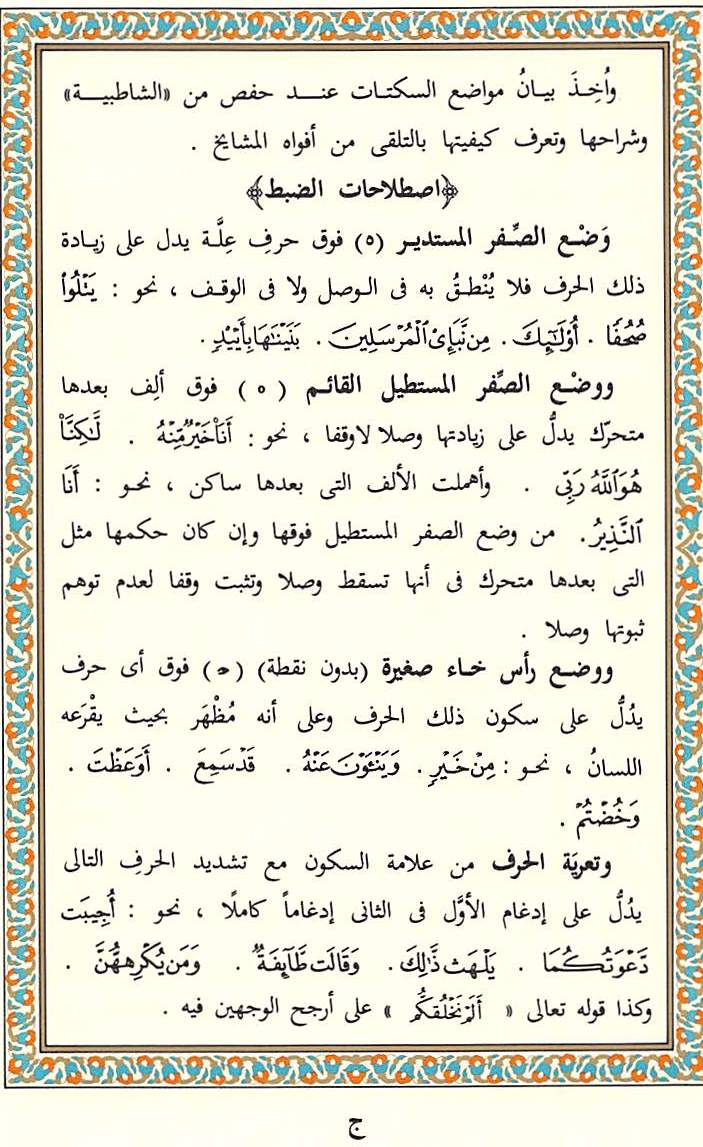 وأُخِذَ بيـانُ مواضع السكتـات عنـــد حفص من «الشاطبيـــة»
وشراحها وتعرف كيفيتها بالتلقى من أفواه المشايخ .
﴿اصطلاحات الضبط﴾
وَضْع الصِّفر المستديـر (ه) فوق حرفِ عِلَّـة يدل على زيـادة
ذلك الحرف فلا يُنْطـقُ به فى الـوصل ولا فى الوقـف ، نحو : يَتْلُوا۟
صُحُفًا . أُو۟لَـٰٓئِكَ . مِن نَّبَإِى۟ ٱلْمُرْسَلِينَ . بَنَيْنَـٰهَا بِأَيْي۟دٍ .
ووضْـع الصِّفر المستطيل القائـم ( ه ) فوق ألِف بعدها
متحرّك يدلُّ على زيادتها وصلا لاوقفا ، نحو : أَنَا۠ خَيْرٌ مِّنْهُ . لَّـٰكِنَّا۠
هُوَ ٱللَّهُ رَبِّى . وأهملت الألف التى بعدها ساكن ، نحـو : أَنَا
ٱلنَّذِيرُ . من وضع الصفر المستطيل فوقها وإن كان حكمها مثل
التى بعدها متحرك فى أنها تسقط وصلا وتثبت وقفا لعدم توهم
ثبوتها وصلا .
ووضـع رأس خـاء صغيرة (بدون نقطة) (ﺣ) فوق أى حرف
يدُلُّ على سكون ذلك الحرف وعلى أنه مُظْهَر بحيث يقْرَعه
اللسانُ ، نحـو : مِنْ خَيْرٍ . وَيَنْـَٔوْنَ عَنْهُ . قَدْ سَمِعَ . أَوَعَظْتَ .
وَخُضْتُمْ .
وتعريَة الحرف من علامة السكون مع تشديد الحرفِ التالى
يدُلُّ على إدغام الأوَّل فى الثانى إدغاماً كاملًا ، نحو : أُجِيبَت
دَّعْوَتُكُمَا . يَلْهَث ذَّٰلِكَ . وَقَالَت طَّآئِفَةٌ . وَمَن يُكْرِههُّنَّ .
وكذا قوله تعالى « أَلَمْ نَخْلُقكُّم » على أرجح الوجهين فيه .
ج